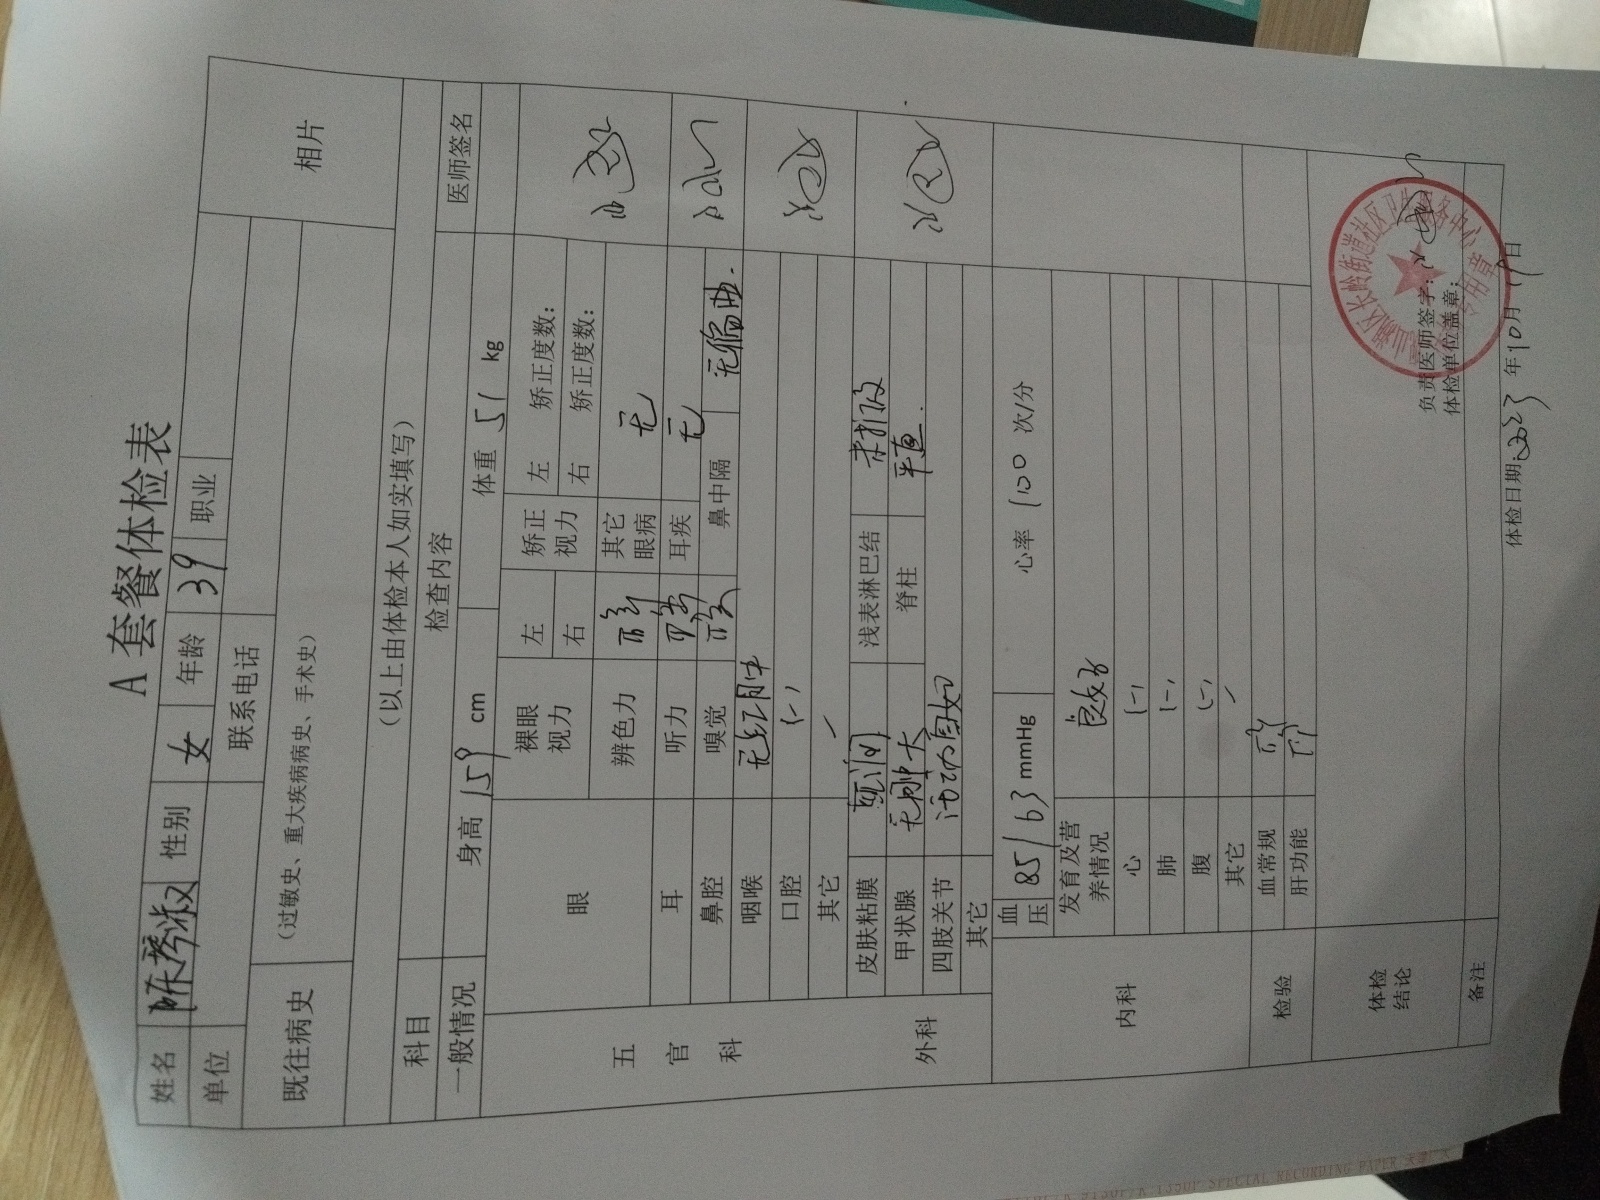 A 套餐体检表
姓名 陈彦淑 性别 女 年龄 39 职业 相片
单位 联系电话
既往病史 （过敏史、重大疾病病史、手术史）
（以上由体检本人如实填写）
科目 检查内容 医师签名
一般情况 身高 159 cm 体重 51 kg
五官科 眼 裸眼视力 左 矫正视力 左 矫正度数：
右 右 矫正度数：
辨色力 正常 其它眼病 无
耳 听力 正常 耳疾 无
鼻腔 嗅觉 正常 鼻中隔 无偏曲.
咽喉 无红肿
口腔 (-)
其它 /
外科 皮肤粘膜 浅表淋巴结 未扪及
甲状腺 无肿大 脊柱 平直.
四肢关节 活动自如
其它
内科 血压 85/63 mmHg 心率 100 次/分
发育及营养情况 良好
心 (-)
肺 (-)
腹 (-)
其它 /
检验 血常规 正常
肝功能 正常
体检结论
负责医师签字：
体检单位盖章：
备注
体检日期：2023 年 10 月 19 日
长岭街道社区卫生服务中心
专用章
SPECIAL RECORDING PAPER